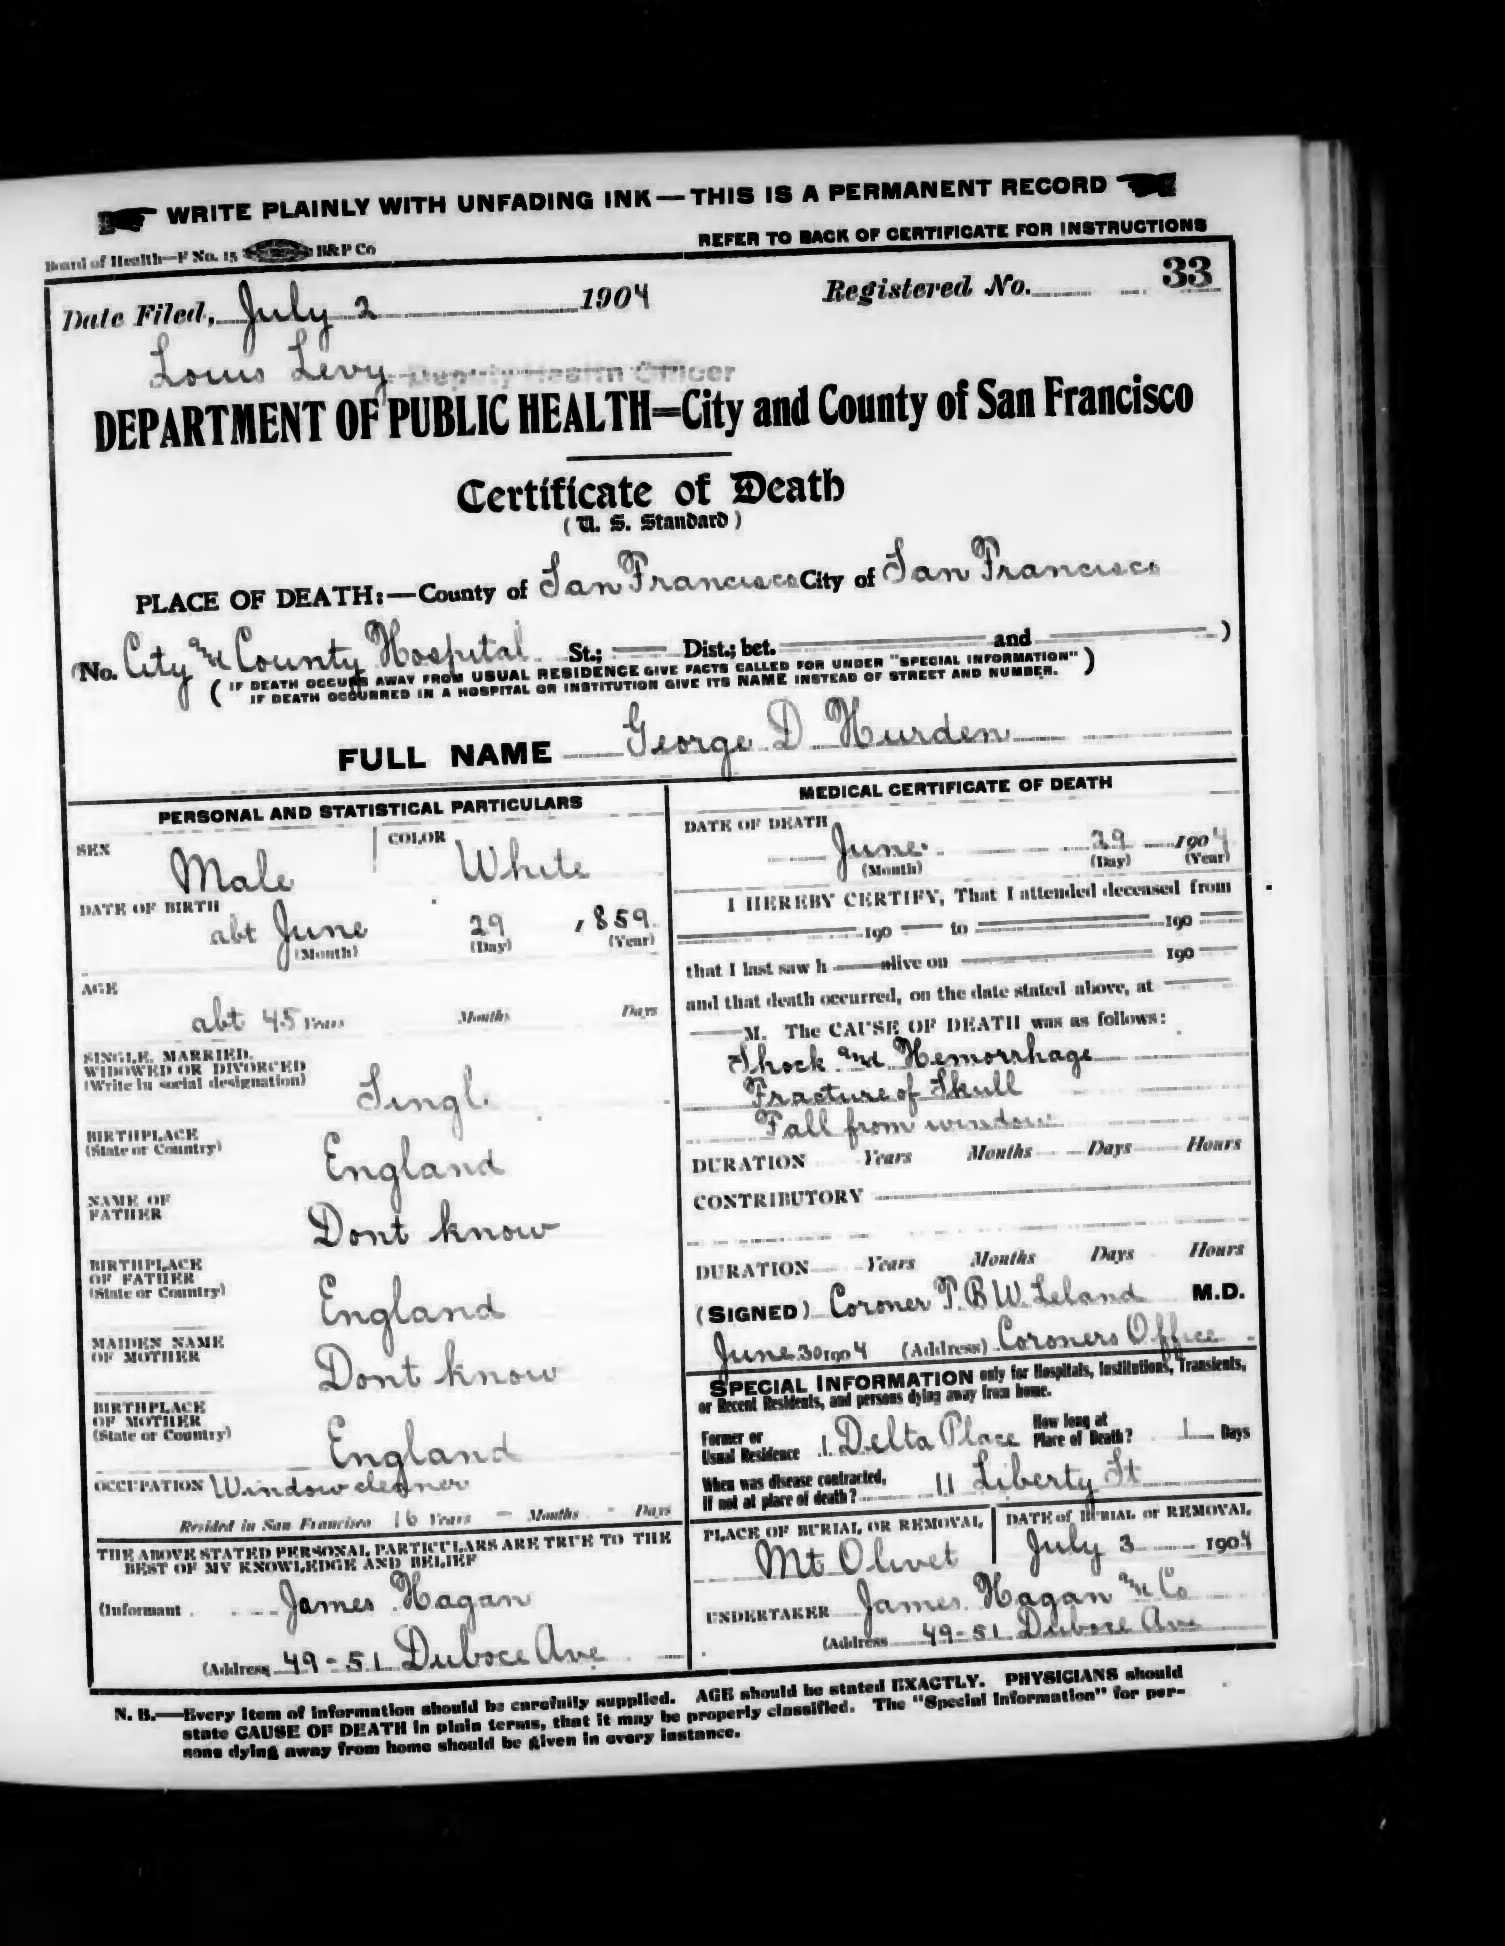 WRITE PLAINLY WITH UNFADING INK — THIS IS A PERMANENT RECORD
Board of Health—F No. 15 B&P Co
REFER TO BACK OF CERTIFICATE FOR INSTRUCTIONS
Date Filed, July 2 1904 Registered No. 33
Louis Levy Deputy Health Officer
DEPARTMENT OF PUBLIC HEALTH=City and County of San Francisco
Certificate of Death
(U. S. Standard)
PLACE OF DEATH:—County of San Francisco City of San Francisco
(No. City and County Hospital St.; Dist.; bet. and )
( IF DEATH OCCURS AWAY FROM USUAL RESIDENCE GIVE FACTS CALLED FOR UNDER "SPECIAL INFORMATION" )
IF DEATH OCCURRED IN A HOSPITAL OR INSTITUTION GIVE ITS NAME INSTEAD OF STREET AND NUMBER.
FULL NAME George D Hurden
PERSONAL AND STATISTICAL PARTICULARS
SEX Male COLOR White
DATE OF BIRTH
abt June 29 1859
(Month) (Day) (Year)
AGE
abt 45 Years Months Days
SINGLE, MARRIED,
WIDOWED OR DIVORCED
(Write in social designation)
Single
BIRTHPLACE
(State or Country)
England
NAME OF
FATHER
Dont know
BIRTHPLACE
OF FATHER
(State or Country)
England
MAIDEN NAME
OF MOTHER
Dont know
BIRTHPLACE
OF MOTHER
(State or Country)
England
OCCUPATION Window cleaner
Resided in San Francisco 16 Years - Months - Days
THE ABOVE STATED PERSONAL PARTICULARS ARE TRUE TO THE
BEST OF MY KNOWLEDGE AND BELIEF
(Informant James Hagan
(Address 49-51 Duboce Ave
MEDICAL CERTIFICATE OF DEATH
DATE OF DEATH
June 29 1904
(Month) (Day) (Year)
I HEREBY CERTIFY, That I attended deceased from
190 to 190
that I last saw h alive on 190
and that death occurred, on the date stated above, at
M. The CAUSE OF DEATH was as follows:
Shock and Hemorrhage
Fracture of Skull
Fall from window
DURATION Years Months Days Hours
CONTRIBUTORY
DURATION Years Months Days Hours
(SIGNED) Coroner T. B W. Leland M.D.
June 30 1904 (Address) Coroners Office
SPECIAL INFORMATION only for Hospitals, Institutions, Transients,
or Recent Residents, and persons dying away from home.
Former or
Usual Residence 1 Delta Place
How long at
Place of Death? 1 Days
When was disease contracted,
If not at place of death? 11 Liberty St
PLACE OF BURIAL OR REMOVAL
Mt Olivet
DATE of BURIAL or REMOVAL
July 3 1904
UNDERTAKER James Hagan and Co
(Address 49-51 Duboce Ave
N. B.—Every item of information should be carefully supplied. AGE should be stated EXACTLY. PHYSICIANS should
state CAUSE OF DEATH in plain terms, that it may be properly classified. The "Special Information" for per-
sons dying away from home should be given in every instance.